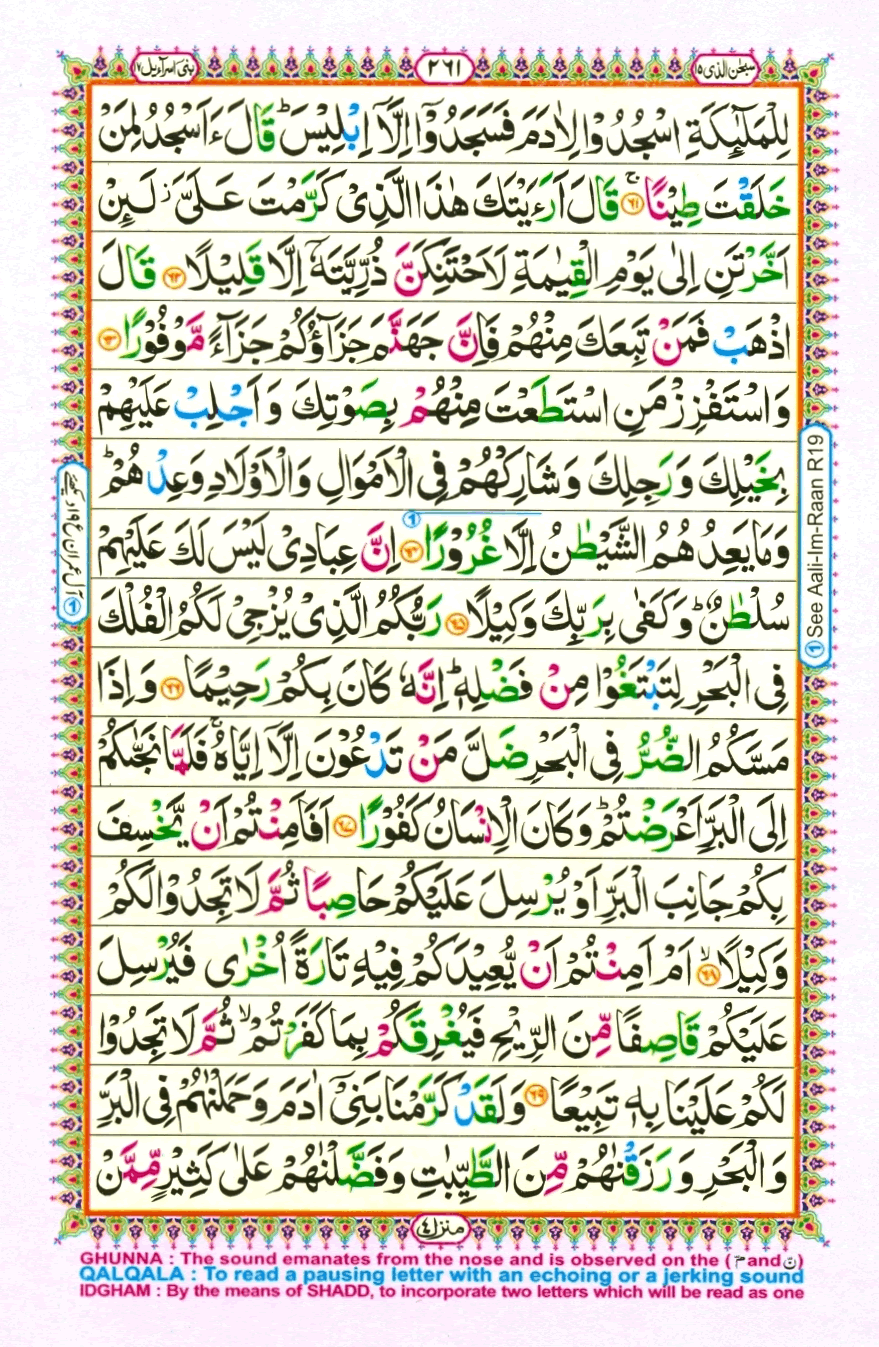 سبحٰن الذی ۱۵
۲۶۱
بنی اسرآءیل ۱۷
لِلْمَلٰٓئِكَةِ اسْجُدُوْا لِاٰدَمَ فَسَجَدُوْۤا اِلَّاۤ اِبْلِیْسَ ؕ قَالَ ءَاَسْجُدُ لِمَنْ
خَلَقْتَ طِیْنًا ۚ‏﴿۶۱﴾ قَالَ اَرَءَیْتَكَ هٰذَا الَّذِیْ كَرَّمْتَ عَلَیَّ ؗ لَىِٕنْ
اَخَّرْتَنِ اِلٰی یَوْمِ الْقِیٰمَةِ لَاَحْتَنِكَنَّ ذُرِّیَّتَهٗۤ اِلَّا قَلِیْلًا ﴿۶۲﴾ قَالَ
اذْهَبْ فَمَنْ تَبِعَكَ مِنْهُمْ فَاِنَّ جَهَنَّمَ جَزَآؤُكُمْ جَزَآءً مَّوْفُوْرًا ﴿۶۳﴾
وَ اسْتَفْزِزْ مَنِ اسْتَطَعْتَ مِنْهُمْ بِصَوْتِكَ وَ اَجْلِبْ عَلَیْهِمْ
بِخَیْلِكَ وَ رَجِلِكَ وَ شَارِكْهُمْ فِی الْاَمْوَالِ وَ الْاَوْلَادِ وَ عِدْهُمْ ؕ
وَ مَا یَعِدُهُمُ الشَّیْطٰنُ اِلَّا غُرُوْرًا ① ﴿۶۴﴾ اِنَّ عِبَادِیْ لَیْسَ لَكَ عَلَیْهِمْ
سُلْطٰنٌ ؕ وَ كَفٰی بِرَبِّكَ وَكِیْلًا ﴿۶۵﴾ رَبُّكُمُ الَّذِیْ یُزْجِیْ لَكُمُ الْفُلْكَ
فِی الْبَحْرِ لِتَبْتَغُوْا مِنْ فَضْلِهٖ ؕ اِنَّهٗ كَانَ بِكُمْ رَحِیْمًا ﴿۶۶﴾ وَ اِذَا
مَسَّكُمُ الضُّرُّ فِی الْبَحْرِ ضَلَّ مَنْ تَدْعُوْنَ اِلَّاۤ اِیَّاهُ ۚ فَلَمَّا نَجّٰىكُمْ
اِلَی الْبَرِّ اَعْرَضْتُمْ ؕ وَ كَانَ الْاِنْسَانُ كَفُوْرًا ﴿۶۷﴾ اَفَاَمِنْتُمْ اَنْ یَّخْسِفَ
بِكُمْ جَانِبَ الْبَرِّ اَوْ یُرْسِلَ عَلَیْكُمْ حَاصِبًا ثُمَّ لَا تَجِدُوْا لَكُمْ
وَكِیْلًا ۙ﴿۶۸﴾ اَمْ اَمِنْتُمْ اَنْ یُّعِیْدَكُمْ فِیْهِ تَارَةً اُخْرٰی فَیُرْسِلَ
عَلَیْكُمْ قَاصِفًا مِّنَ الرِّیْحِ فَیُغْرِقَكُمْ بِمَا كَفَرْتُمْ ۙ ثُمَّ لَا تَجِدُوْا
لَكُمْ عَلَیْنَا بِهٖ تَبِیْعًا ﴿۶۹﴾ وَ لَقَدْ كَرَّمْنَا بَنِیْۤ اٰدَمَ وَ حَمَلْنٰهُمْ فِی الْبَرِّ
وَ الْبَحْرِ وَ رَزَقْنٰهُمْ مِّنَ الطَّیِّبٰتِ وَ فَضَّلْنٰهُمْ عَلٰی كَثِیْرٍ مِّمَّنْ
① See Aali-Im-Raan R19
① آل عمران ع ۱۹ دیکھئے
منزل ۴
GHUNNA : The sound emanates from the nose and is observed on the ( مّ and نّ )
QALQALA : To read a pausing letter with an echoing or a jerking sound
IDGHAM : By the means of SHADD, to incorporate two letters which will be read as one